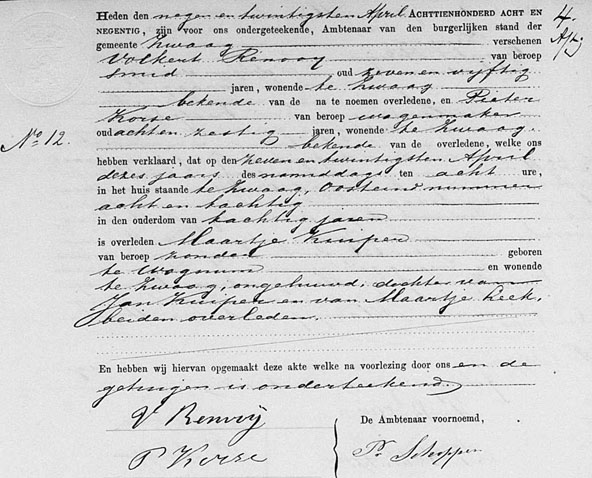 4.
Afsj
Heden den negen en twintigsten April ACHTTIENHONDERD ACHT EN
NEGENTIG, zijn voor ons ondergeteekende, Ambtenaar van den burgerlijken stand der
gemeente Zwaag verschenen
Volkert Renooy van beroep
smid oud zeven en vijftig
jaren, wonende te Zwaag
bekende van de na te noemen overledene, en Pieter
Korse van beroep wagenmaker
oud acht en zestig jaren, wonende te Zwaag.
No. 12.
bekende van de overledene, welke ons
hebben verklaard, dat op den zeven en twintigsten April
dezes jaars des namiddags ten acht ure,
in het huis staande te Zwaag, Oosteind nummer
acht en tachtig
in den ouderdom van tachtig jaren
is overleden Maartje Kuiper
van beroep zonder geboren
te Wognum en wonende
te Zwaag, ongehuwd, dochter van
Jan Kuiper en van Maartje Leek,
beiden overleden.
En hebben wij hiervan opgemaakt deze akte welke na voorlezing door ons en de
getuigen is onderteekend.
V Renooij
De Ambtenaar voornoemd,
P Korse
Pr Schoppen